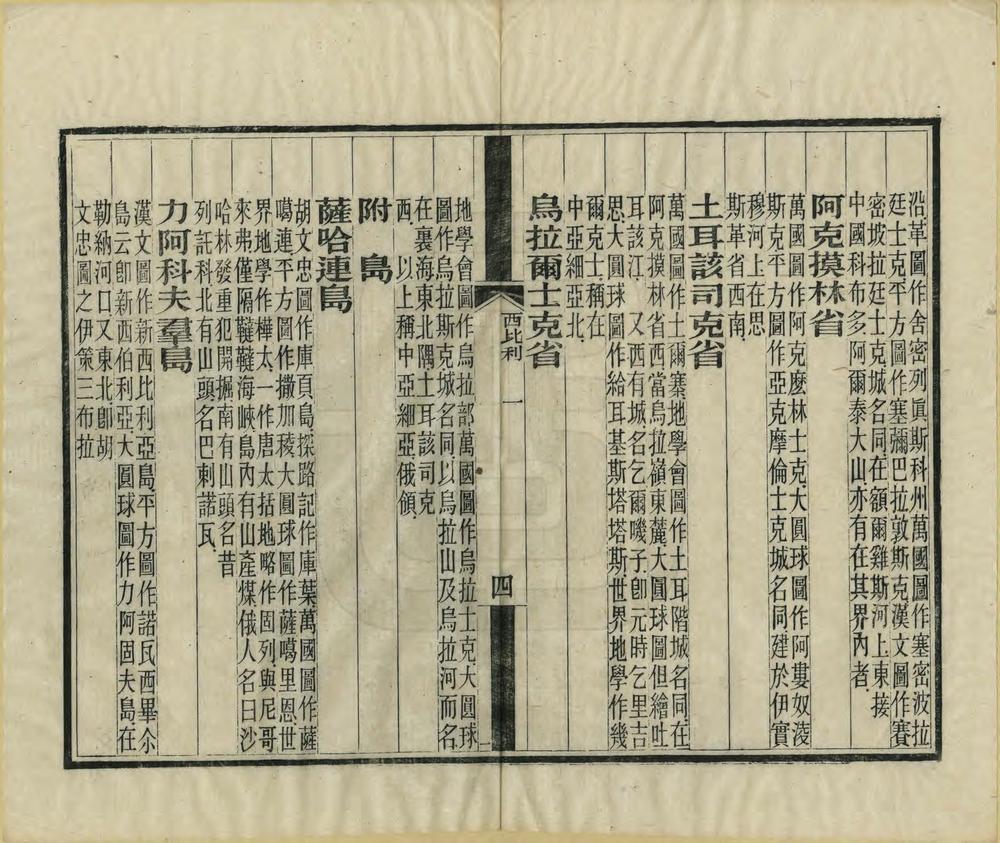 沿革圖作舍密列眞斯科州萬國圖作塞密波拉
廷士克平方圖作塞彌巴拉敦斯克漢文圖作賽
密坡拉廷士克城名同在額爾雞斯河上東接
中國科布多阿爾泰大山亦有在其界內者
阿克摸林省
萬國圖作阿克麼林士克大圓球圖作阿婁奴淩
斯克平方圖作亞克摩倫士克城名同建於伊實
穆河上在思
斯革省西南
土耳該司克省
萬國圖作土爾塞地學會圖作土耳階城名同在
阿克摸林省西當烏拉嶺東麓大圓球圖但繪吐
耳該江又西有城名乞爾嘰子卽元時乞里吉
思大圓球圖作給耳基斯塔塔斯世界地學作幾
爾克士稱在
中亞細亞北
烏拉爾士克省
西比利
一
四
地學會圖作烏拉部萬國圖作烏拉士克大圓球
圖作烏拉斯克城名同以烏拉山及烏拉河而名
在裏海東北隅土耳該司克
西以上稱中亞細亞俄領
附島
薩哈連島
胡文忠圖作庫頁島探路記作庫葉萬國圖作薩
噶連平方圖作撒加稜大圓球圖作薩噶里恩世
界地學作樺太一作唐太括地略作固列與尼哥
來弗僅隔韃韃海峽島內有山產煤俄人名曰沙
哈林發重犯開掘南有山頭名昔
列託科北有山頭名巴剌諾瓦
力阿科夫羣島
漢文圖作新西比利亞島平方圖作諾瓦西畢尒
島云卽新西伯利亞大圓球圖作力阿固夫島在
勒納河口又東北卽胡
文忠圖之伊策三布拉